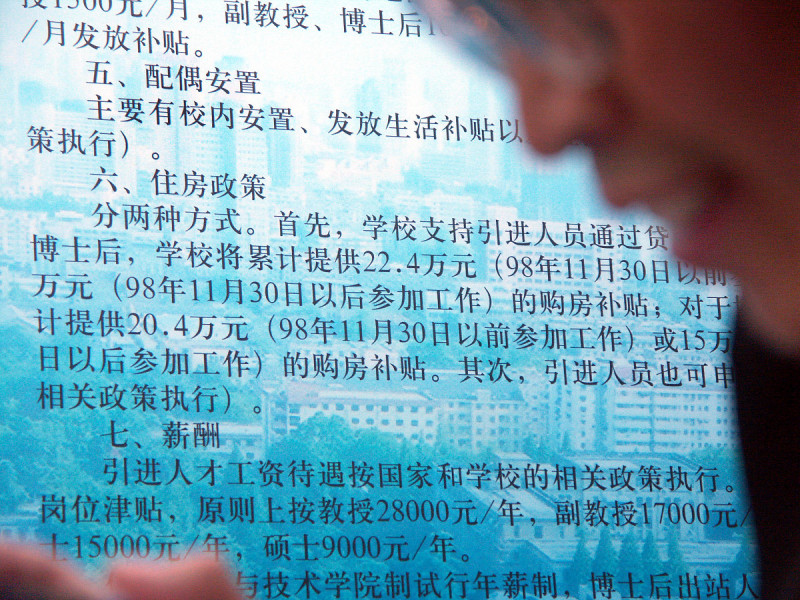 授1500元/月，副教授、博士后10
/月发放补贴。
五、配偶安置
主要有校内安置、发放生活补贴以
策执行）。
六、住房政策
分两种方式。首先，学校支持引进人员通过贷
博士后，学校将累计提供22.4万元（98年11月30日以前
万元（98年11月30日以后参加工作）的购房补贴；对于
计提供20.4万元（98年11月30日以前参加工作）或15万
日以后参加工作）的购房补贴。其次，引进人员也可申
相关政策执行）。
七、薪酬
引进人才工资待遇按国家和学校的相关政策执行。
岗位津贴，原则上按教授28000元/年，副教授17000元/
士15000元/年，硕士9000元/年。
与技术学院制试行年薪制，博士后出站人